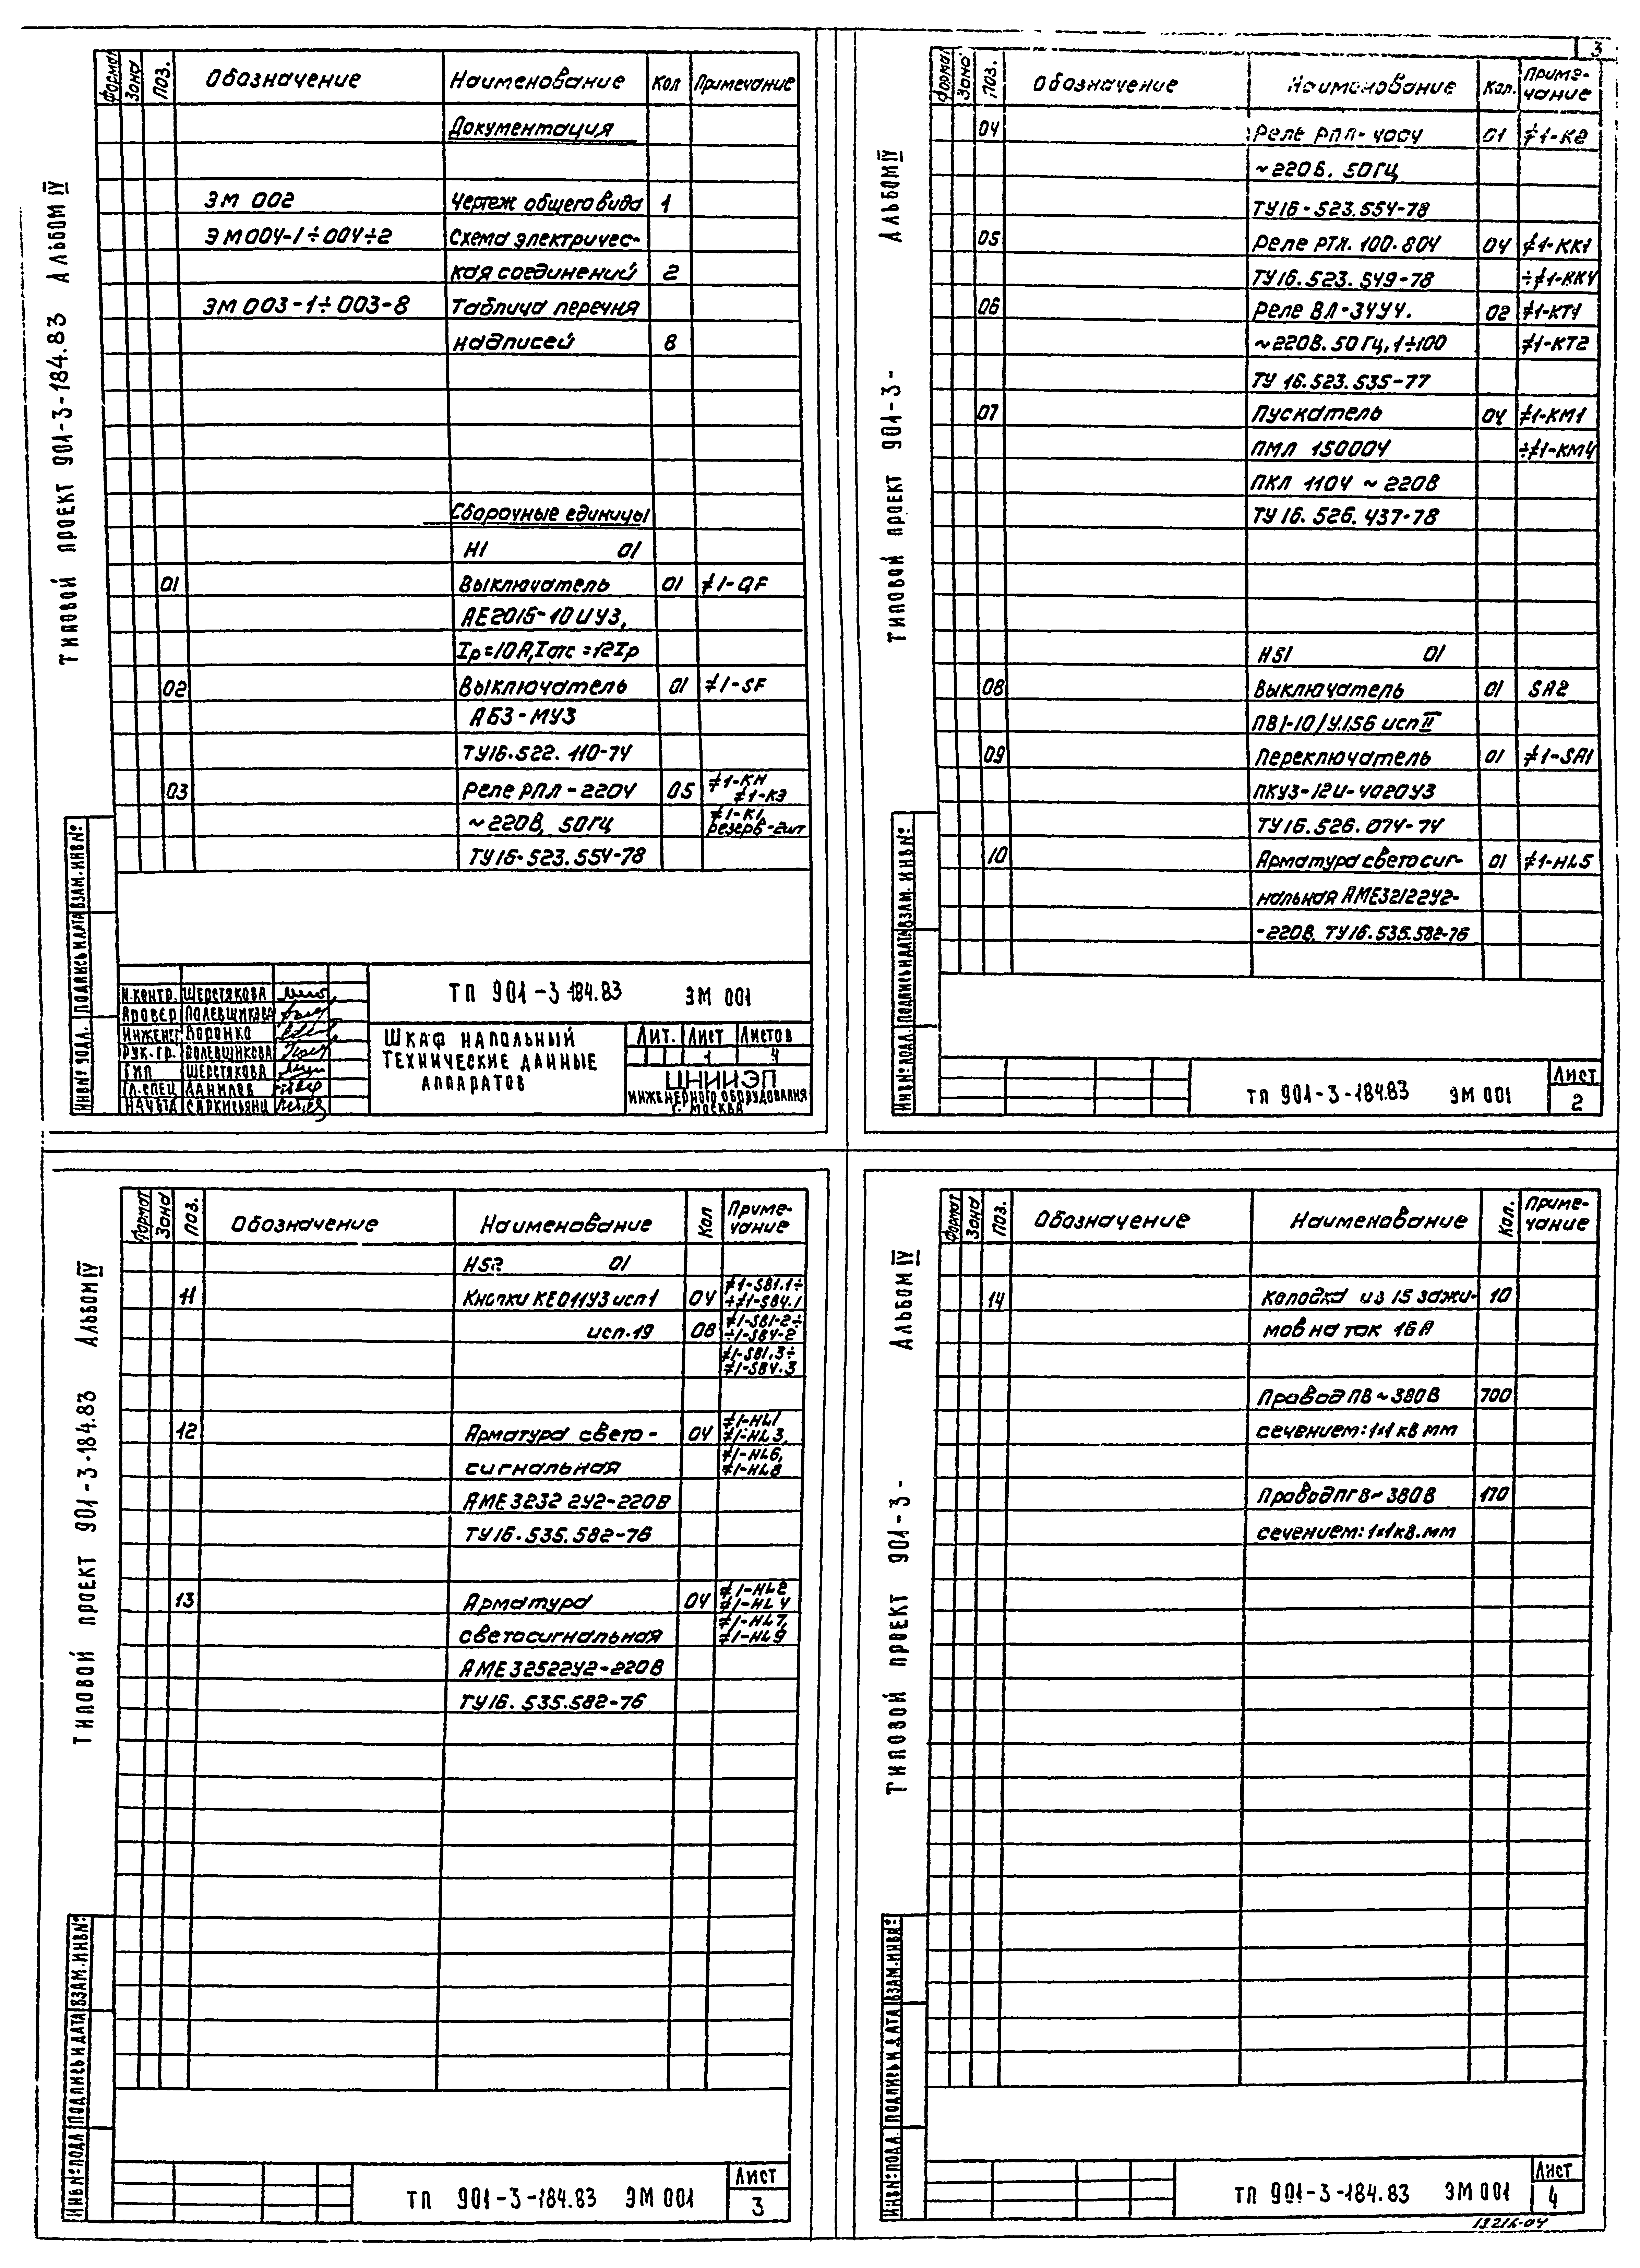 3
Формат Зона Поз. Обозначение Наименование Кол Примечание
Документация
ЭМ 002 Чертеж общего вида 1
ЭМ004-1÷004÷2 Схема электричес-
кая соединений 2
ЭМ 003-1÷003-8 Таблица перечня
надписей 8
Сборочные единицы
Н1 01
01 Выключатель 01 ≠1-QF
АЕ2016-10ИУ3,
Iр=10А, Iотс=12Iр
02 Выключатель 01 ≠1-SF
АБ3-МУ3
ТУ16.522.110-74
03 Реле РПЛ-2204 05 ≠1-КН
≠1-К3
~220В, 50ГЦ ≠1-К1,
резерв-2шт
ТУ16-523.554-78
Типовой проект 901-3-184.83 Альбом IV
Инв№ подл. Подпись и дата Взам.инв№
Н.контр. Шерстякова
Провер Полевщикова
Инженер Воронко
Рук.гр. Полевщикова
Гип Шерстякова
Гл.спец Данилов
Нач.отд Саркисьянц
ТП 901-3-184.83 ЭМ 001
Шкаф напольный
Технические данные
аппаратов
Лит. Лист Листов
1 4
ЦНИИЭП
инженерного оборудования
г. Москва
Формат Зона Поз. Обозначение Наименование Кол. Приме-
чание
04 Реле РПЛ-4004 01 ≠1-К2
~220В. 50ГЦ
ТУ16-523.554-78
05 Реле РТЛ.100.804 04 ≠1-КК1
ТУ16.523.549-78 ÷≠1-КК4
06 Реле ВЛ-34У4. 02 ≠1-КТ1
~220В.50Гц,1÷100 ≠1-КТ2
ТУ 16.523.535-77
07 Пускатель 04 ≠1-КМ1
ПМЛ 150004 ÷≠1-КМ4
ПКЛ 1104 ~220В
ТУ16.526.437-78
Н51 01
08 Выключатель 01 SA2
ПВ1-10/У.156 исп II
09 Переключатель 01 ≠1-SA1
ПКУ3-12И-4020У3
ТУ16.526.074-74
10 Арматура светосиг- 01 ≠1-HL5
нальная АМЕ32122У2-
-220В, ТУ16.535.582-76
Типовой проект 901-3- Альбом IV
Инв№ подл. Подпись и дата Взам. инв№
ТП 901-3-184.83 ЭМ 001
Лист
2
Формат Зона Поз. Обозначение Наименование Кол Приме-
чание
Н52 01
11 Кнопки КЕ011У3 исп1 04 ≠1-SB1.1÷
÷≠1-SB4.1
исп.19 08 ≠1-SB1-2÷
÷1-SB4-2
≠1-SB1.3÷
≠1-SB4.3
12 Арматура свето- 04 ≠1-HL1
≠1-HL3,
сигнальная ≠1-HL6,
≠1-HL8
АМЕ3232 2У2-220В
ТУ16.535.582-76
13 Арматура 04 ≠1-HL2
≠1-HL4
светосигнальная ≠1-HL7,
≠1-HL9
АМЕ32522У2-220В
ТУ16.535.582-76
Типовой проект 901-3-184.83 Альбом IV
Инв№ подл Подпись и дата Взам.инв№
ТП 901-3-184.83 ЭМ 001
Лист
3
Формат Зона Поз. Обозначение Наименование Кол. Приме-
чание
14 Колодка из 15 зажи- 10
мов на ток 16А
Провод ПВ ~380В 700
сечением:1×1 кв мм
Провод ПГВ~380В 170
сечением:1×1кв.мм
Типовой проект 901-3- Альбом IV
Инв№ подл. Подпись и дата Взам.инв№
ТП 901-3-184.83 ЭМ 001
Лист
4
19216-04